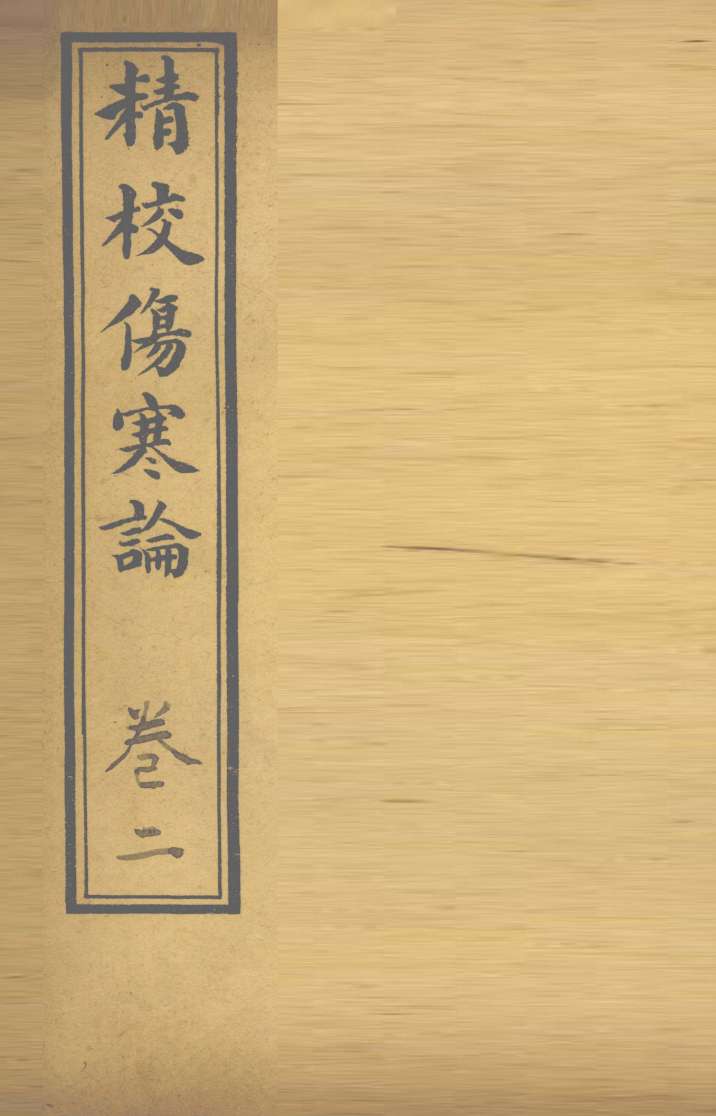 精校傷寒論 卷二